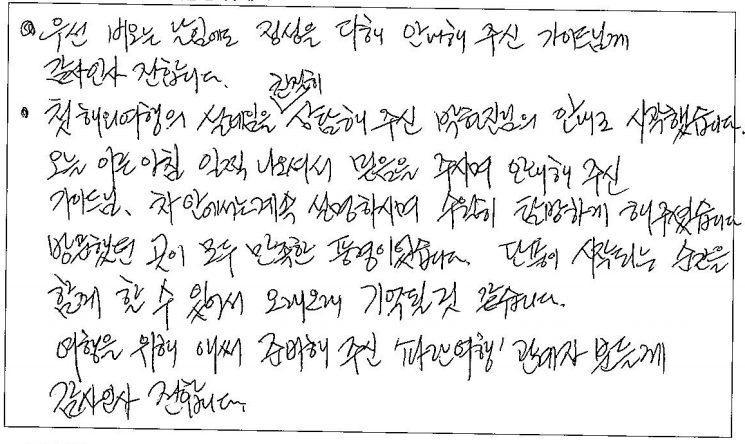 우선 비오는 날임에도 정성을 다해 안내해 주신 가이드님께
감사인사 전합니다.
친절히
첫 해외여행의 설레임을 상담해 주신 박현진님의 안내로 시작했습니다.
오늘 이른 아침 일찍 나오셔서 믿음을 주시며 안내해 주신
가이드님. 차 안에서는 계속 설명하시며 수월히 탐방하게 해주셨습니다
방문했던 곳이 모두 만족한 풍경이었습니다. 단풍이 시작되는 순간을
함께 할 수 있어서 오래오래 기억될것 같습니다.
여행을 위해 애써 준비해 주신 '파란여행' 관계자 분들께
감사인사 전합니다.